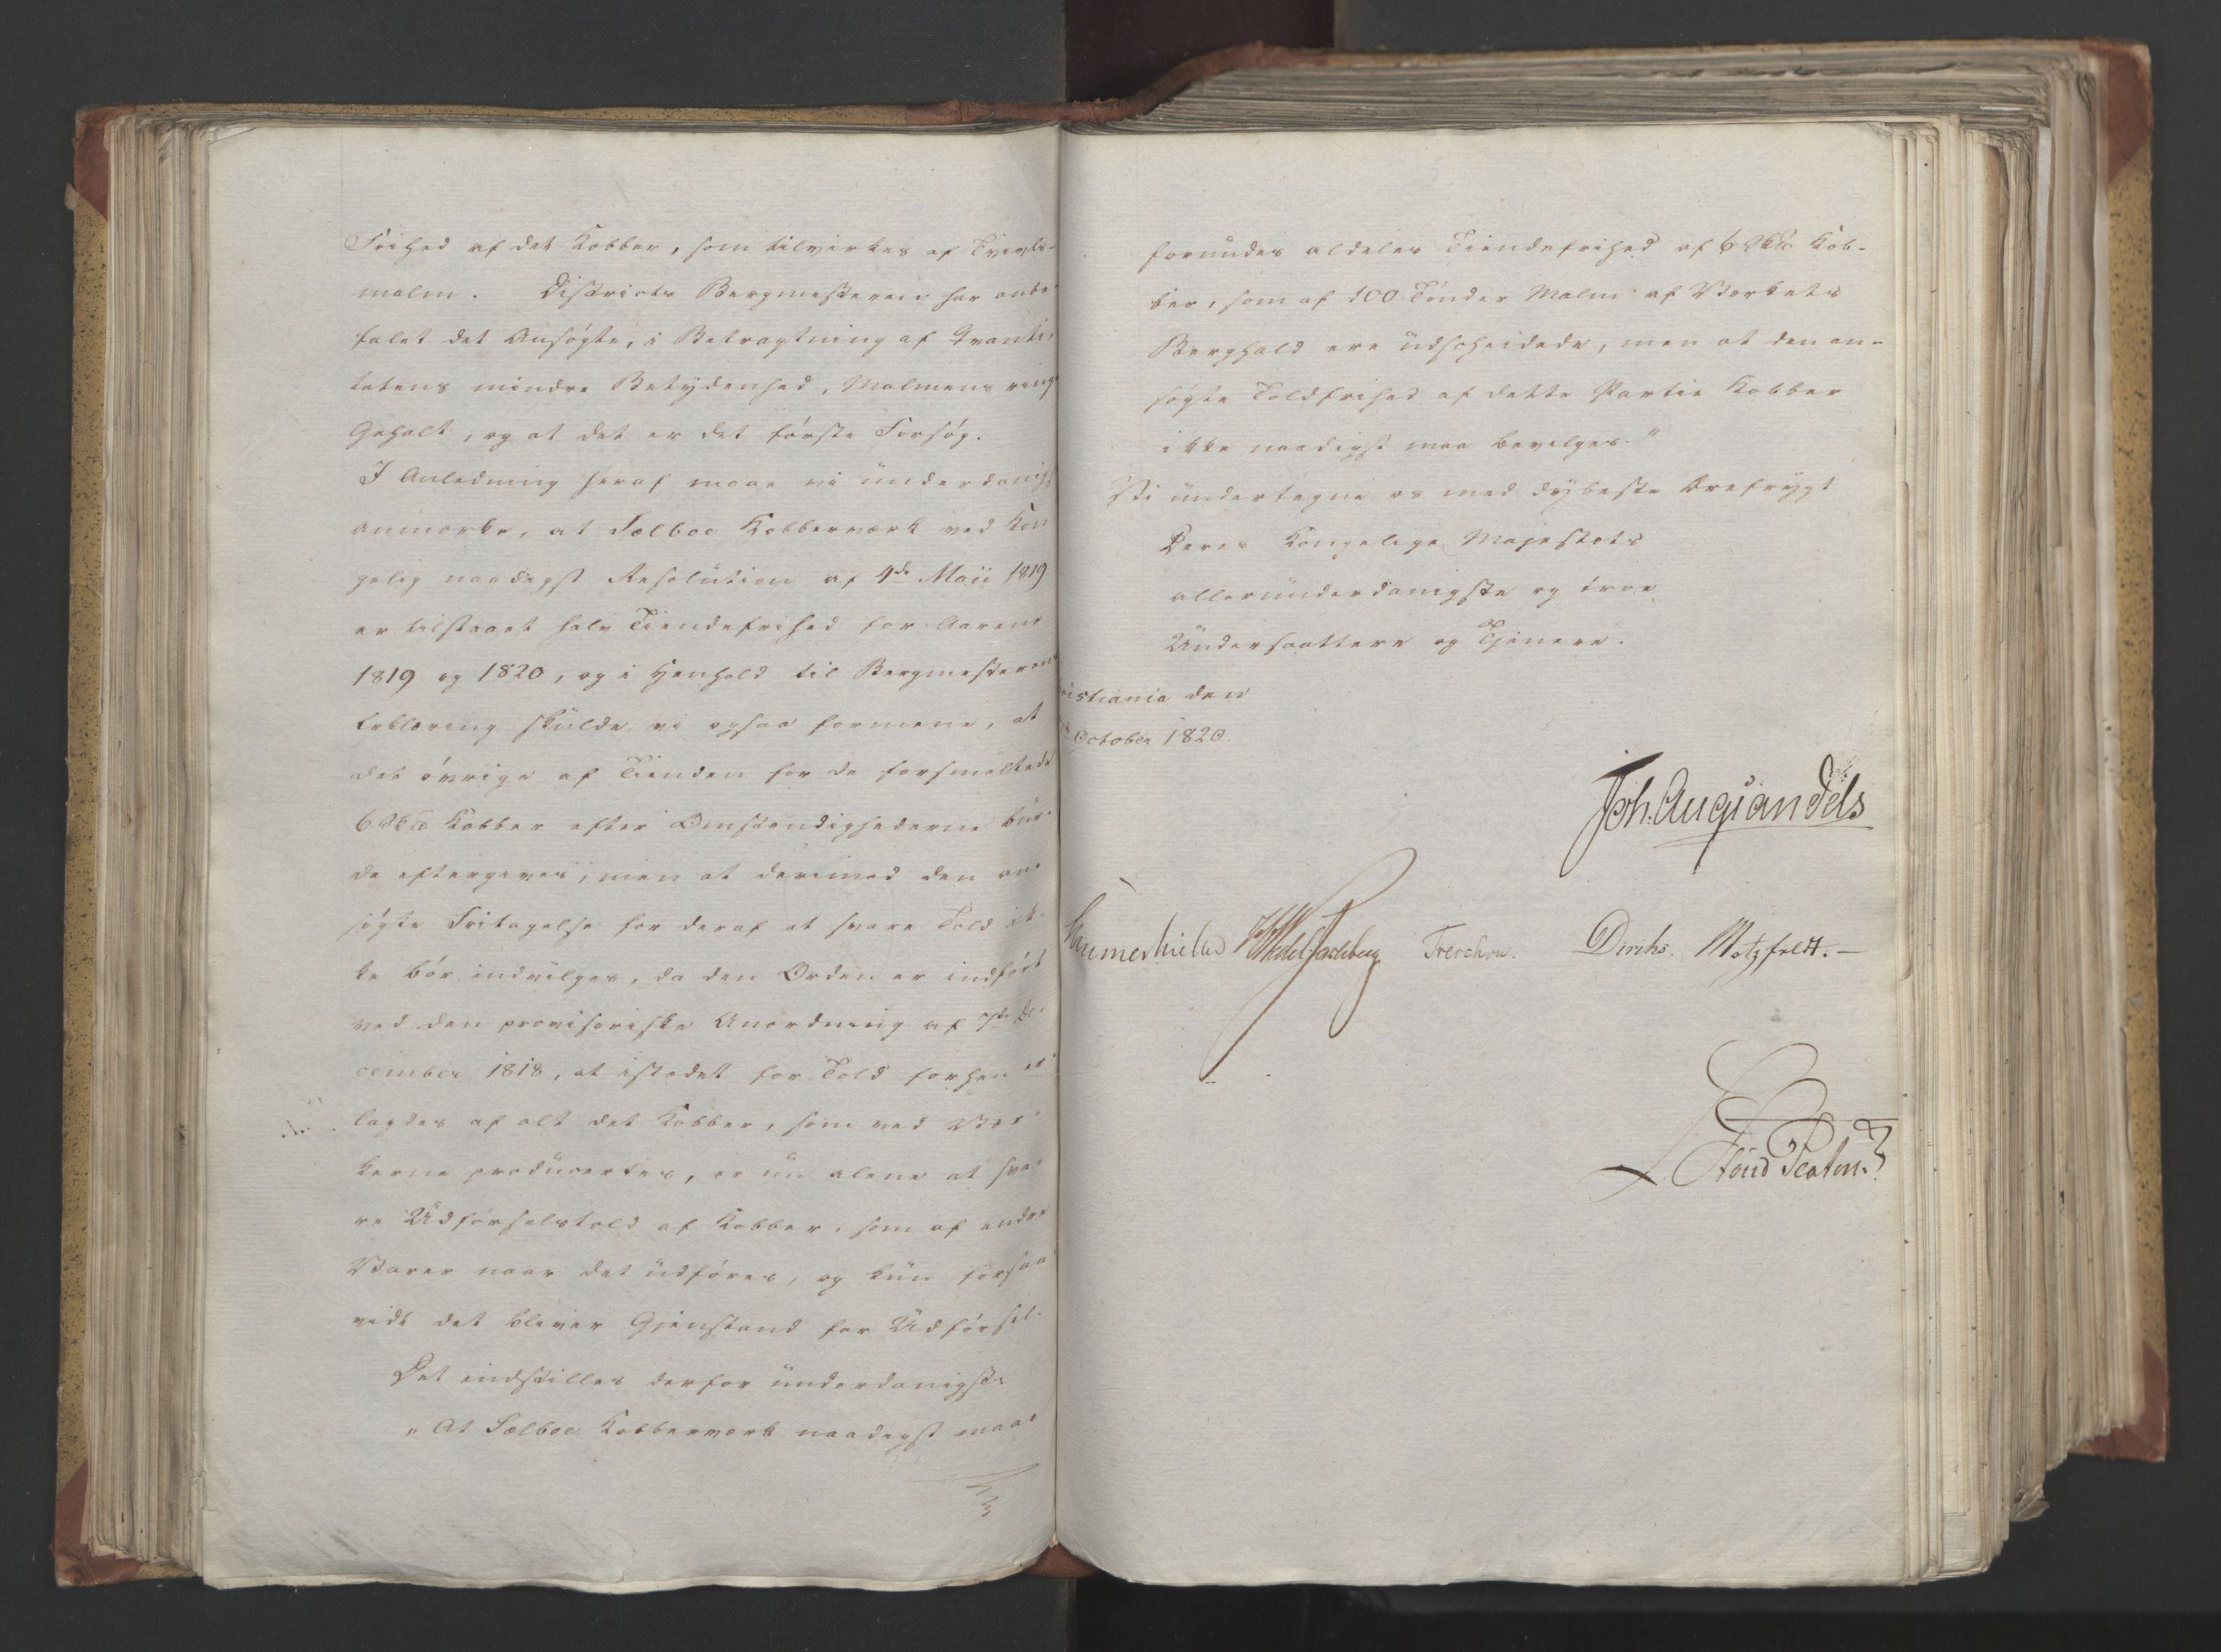 Frihed af det Kobber, som tilvirkes af Tvivls-
malm. Districts Bergmesteren har anbe-
falet det Ansøgte, i Betragtning af Qvanti-
tetens mindre Betydenhed, Malmens ringe
Gehalt, og at det er det første Forsøg.
I Anledning heraf maae vi ünderdanigst
anmærke, at Sælboe Kobberværk ved Kon
gelig naadigst Resolütion af 4de Maii 1819
er tilstaaet halv Tiendefrihed for Aarene
1819 og 1820, og i Henhold til Bergmesterens
Erklæring skülde vi ogsaa formene, at
det øvrige af Tienden for de forsmeltede
6 Sk℔ Kobber efter Omstændighederne bür-
de eftergives, men at derimod den an-
søgte Fritagelse for deraf at svare Told ik-
ke bør indvilges, da den Orden er indført
ved den provisoriske Anordning af 7de De-
cember 1818, at istædet for Told forhen er-
lagdes af alt det Kobber, som ved Vær-
kerne prodücertes, er nü alene at sva-
re Üdførselstold af Kobber, som af andre
Varer naar det üdføres, og kün forsaa-
vidt det bliver Gjenstand for Üdførsel.
Det indstilles derfor ünderdanigst:
„At Sælboe Kobberværk naadigst maae
forundes aldeles Tiendefrihed af 6 Sk℔ Kob-
ber, som af 100 Tønder Malm af Værkets
Berghald ere üdscheidede, men at den an-
søgte Toldfrihed af dette Partie Kobber
ikke naadigst maa bevilges."
Vi ündertegne os med dÿbeste Ærefrÿgt
Deres Kongelige Majestæts
alleründerdanigste og troe
Ündersaattere og Tjenere.
istiania den
October 1820.
Joh: Aug: Sandels
Sommerhielm Wedel Jarlsberg Treschow. Diriks. Motzfeldt.